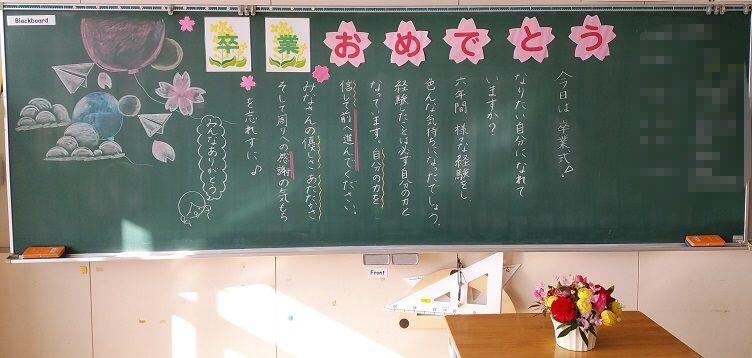 Blackboard
卒業おめでとう
今日は卒業式♪
なりたい自分になれて
いますか?
六年間 様々な経験をし
色んな気持ちになったでしょう。
経験したことは必ず自分の力と
なっています。自分の力を
信じて前へ進んでください。
みなさんの優しさ あたたかさ
そして周りへの感謝の気もち
を忘れずに♪
みんなありがとう
Front